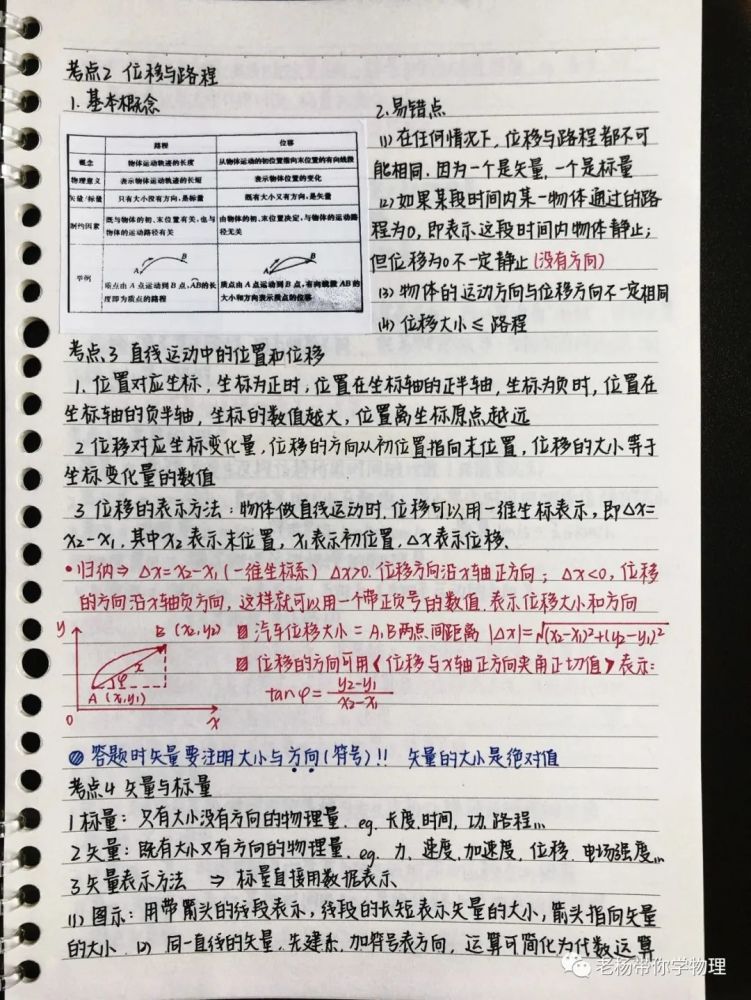 考点2 位移与路程
1. 基本概念
路程 位移
概念 物体运动轨迹的长度 从物体运动的初位置指向末位置的有向线段
物理意义 表示物体运动轨迹的长短 表示物体位置的变化
矢量/标量 只有大小没有方向,是标量 既有大小又有方向,是矢量
制约因素 既与物体的初、末位置有关,也与物体的运动路径有关 由物体的初、末位置决定,与物体的运动路径无关
举例
A B A B
质点由A点运动到B点,AB的长度即为质点的路程 质点由A点运动到B点,有向线段AB的大小和方向表示质点的位移
2. 易错点
(1) 在任何情况下,位移与路程都不可
能相同.因为一个是矢量,一个是标量
(2) 如果某段时间内某一物体通过的路
程为0,即表示这段时间内物体静止;
但位移为0不一定静止(没有方向)
(3) 物体的运动方向与位移方向不一定相同
(4) 位移大小≤路程
考点3 直线运动中的位置和位移
1. 位置对应坐标,坐标为正时,位置在坐标轴的正半轴,坐标为负时,位置在
坐标轴的负半轴,坐标的数值越大,位置离坐标原点越远
2 位移对应坐标变化量,位移的方向从初位置指向末位置,位移的大小等于
坐标变化量的数值
3 位移的表示方法:物体做直线运动时,位移可以用一维坐标表示,即Δx=
x2-x1,其中x2表示末位置,x1表示初位置,Δx表示位移.
•归纳⇒ Δx=x2-x1(一维坐标系) Δx>0.位移方向沿x轴正方向; Δx<0,位移
的方向沿x轴负方向,这样就可以用一个带正负号的数值.表示位移大小和方向
y B (x2,y2) x φ A (x1,y1) 0 x
汽车位移大小=A,B两点间距离 |Δx|=√(x2-x1)²+(y2-y1)²
位移的方向可用《位移与x轴正方向夹角正切值》表示:
tanφ= y2-y1/x2-x1
答题时矢量要注明大小与方向(符号)!! 矢量的大小是绝对值
考点4 矢量与标量
1 标量:只有大小没有方向的物理量. eg. 长度,时间,功,路程...
2 矢量:既有大小又有方向的物理量. eg. 力、速度、加速度、位移、电场强度...
3 矢量表示方法 ⇒ 标量直接用数据表示
(1) 图示:用带箭头的线段表示,线段的长短表示矢量的大小,箭头指向矢量
的大小. (2) 同一直线的矢量,先建系,加符号表方向,运算可简化为代数运算
老杨带你学物理